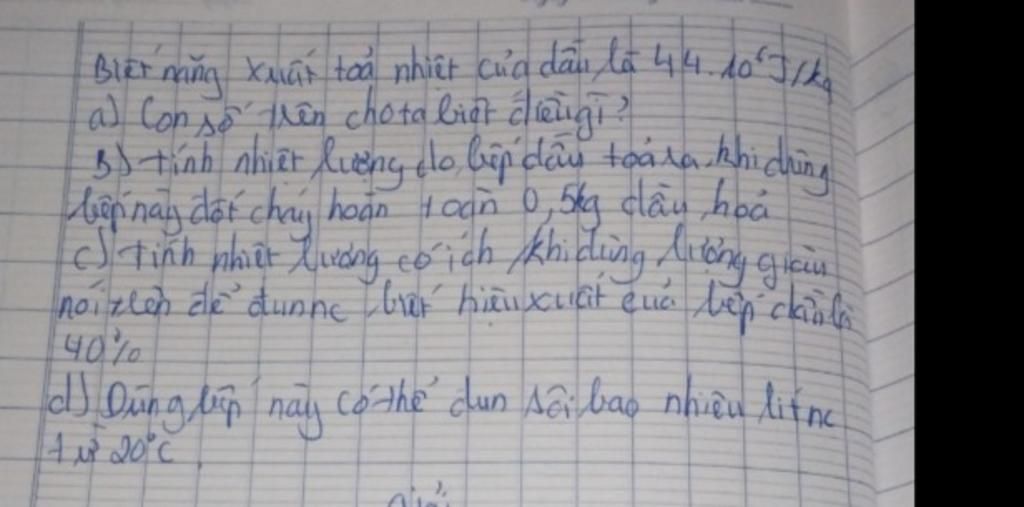 Biết năng xuất toả nhiệt của dầu là 44.10⁶J/kg
a) Con số trên cho ta biết điều gì?
B) tính nhiệt lượng do bếp dầu toả ra khi dùng
bếp này đốt cháy hoàn toàn 0,5kg dầu hoả
c) tính nhiệt lượng có ích khi dùng lượng
nói trên để đun nc biết hiệu xuất của bếp dầu là
40%
d) Dùng bếp này có thể đun sôi bao nhiêu lít nc
từ 20°C
giải